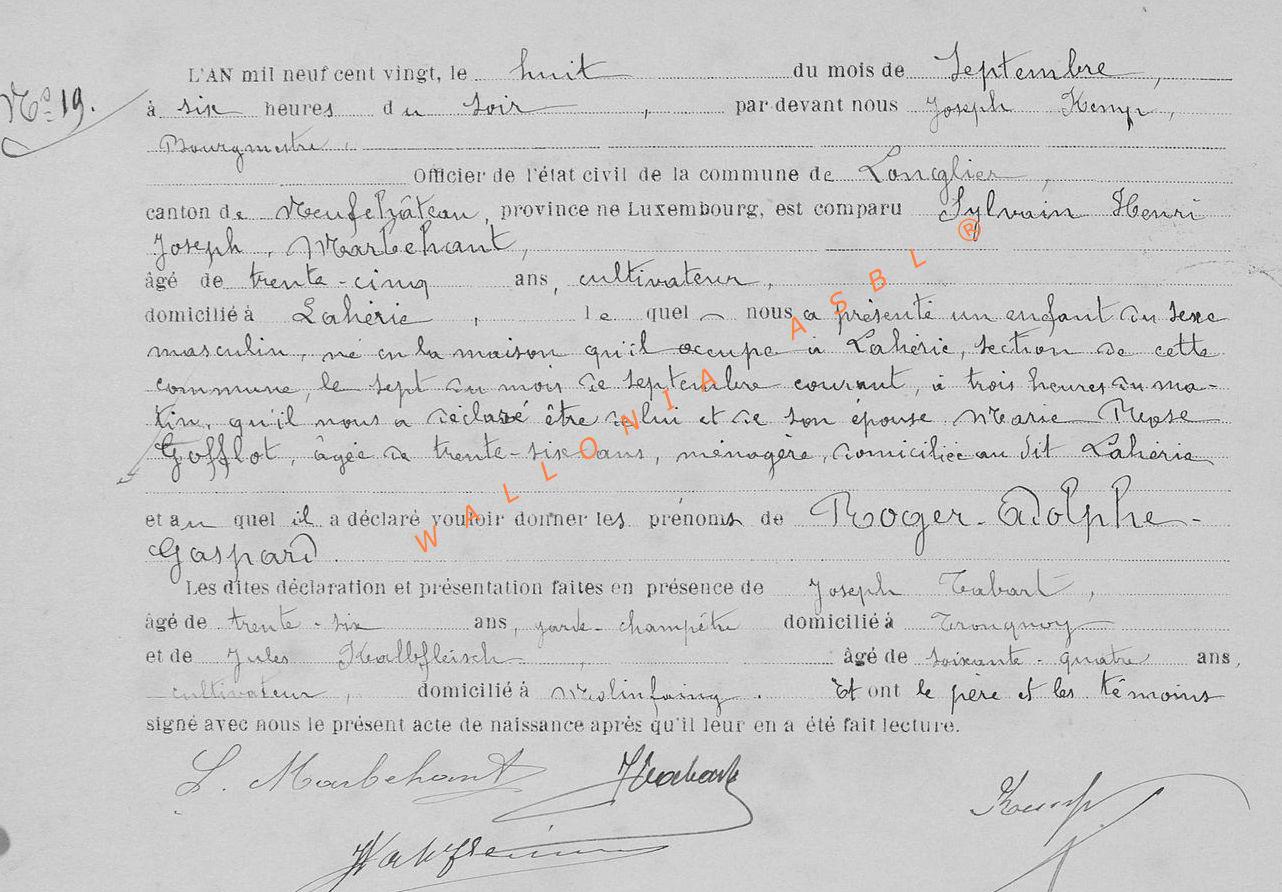 L'AN mil neuf cent vingt, le huit du mois de Septembre,
No 19.
à six heures du soir, par devant nous Joseph Kemp,
Bourgmestre,
Officier de l'état civil de la commune de Longlier,
canton de Neufchâteau, province ne Luxembourg, est comparu Sylvain Henri
Joseph, Marbehant,
âgé de trente-cinq ans, cultivateur,
domicilié à Lahérie, le quel nous a présenté un enfant du sexe
masculin, né en la maison qu'il occupe à Lahérie, section de cette
commune, le sept du mois de septembre courant, à trois heures du ma-
tin, qu'il nous a déclaré être de lui et de son épouse Marie Rose
Gofflot, âgée de trente-six ans, ménagère, domiciliée au dit Lahérie
et au quel il a déclaré vouloir donner les prénoms de Roger-Adolphe-
Gaspard.
Les dites déclaration et présentation faites en présence de Joseph Tabart,
âgé de trente-six ans, garde-champêtre domicilié à Tronquoy
et de Jules Kalbfleisch, âgé de soixante-quatre ans,
cultivateur, domicilié à Molinfaing. Et ont le père et les témoins
signé avec nous le présent acte de naissance après qu'il leur en a été fait lecture.
S. Marbehant
Kemp
WALLONIA ASBL ®